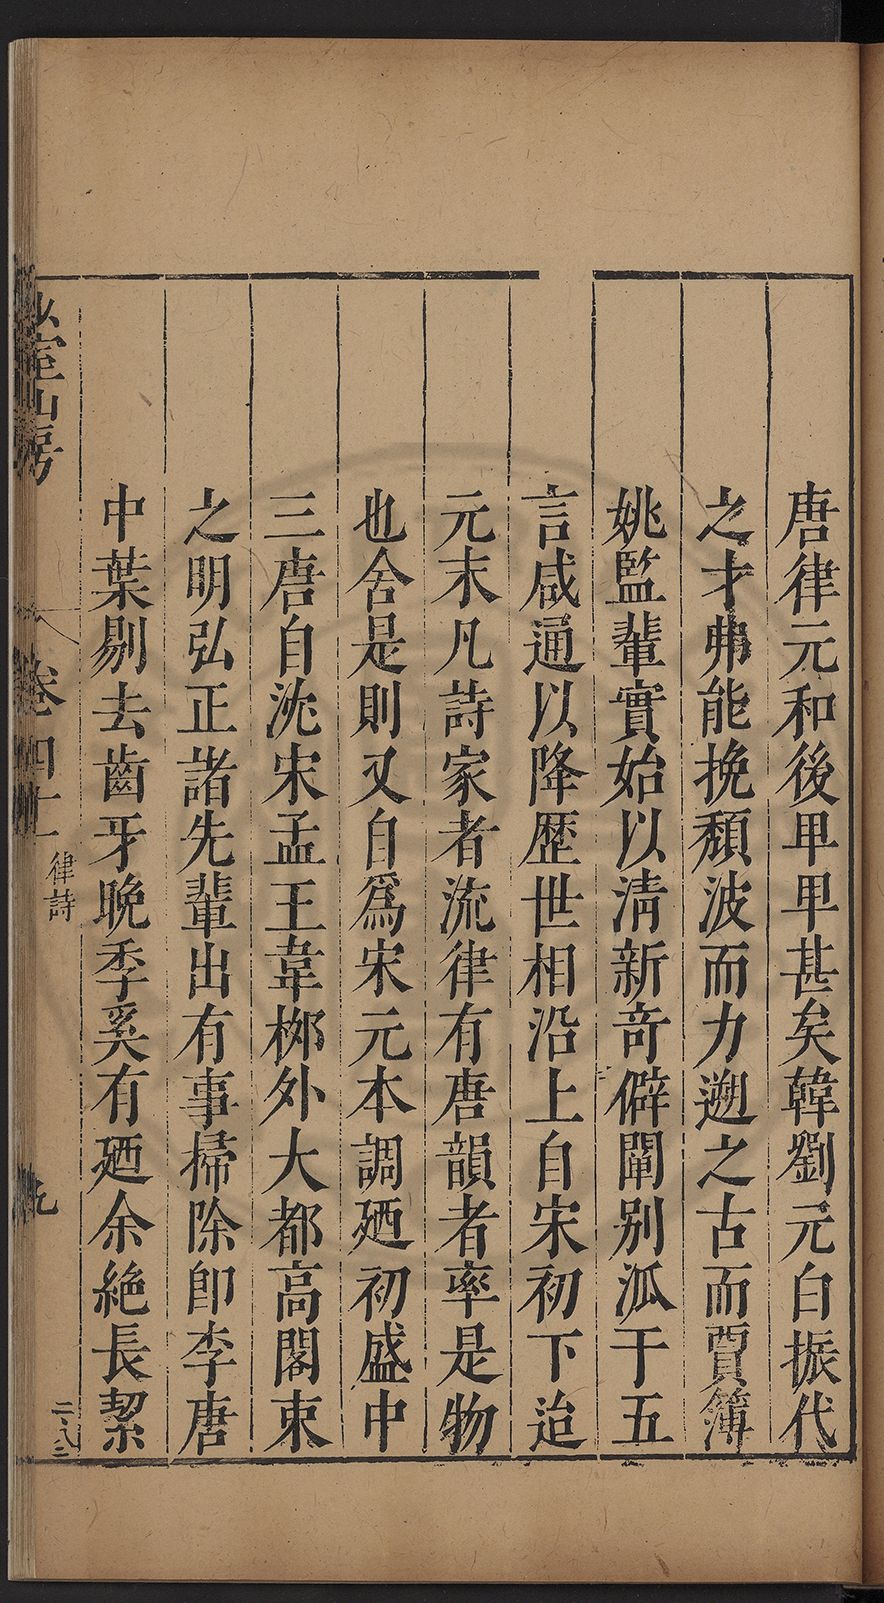 唐律元和後卑卑甚矣韓劉元白振代
之才弗能挽頹波而力遡之古而賈簿
姚監輩實始以清新奇僻闡别派于五
言咸通以降歴世相沿上自宋初下迨
元末凡詩家者流律有唐韻者率是物
也舍是則又自為宋元本調廼初盛中
三唐自沈宋孟王韋栁外大都高閣束
之明弘正諸先輩出有事掃除即李唐
中葉剔去齒牙晚季奚有廼余絶長絜
室山房
卷四十
律詩
九